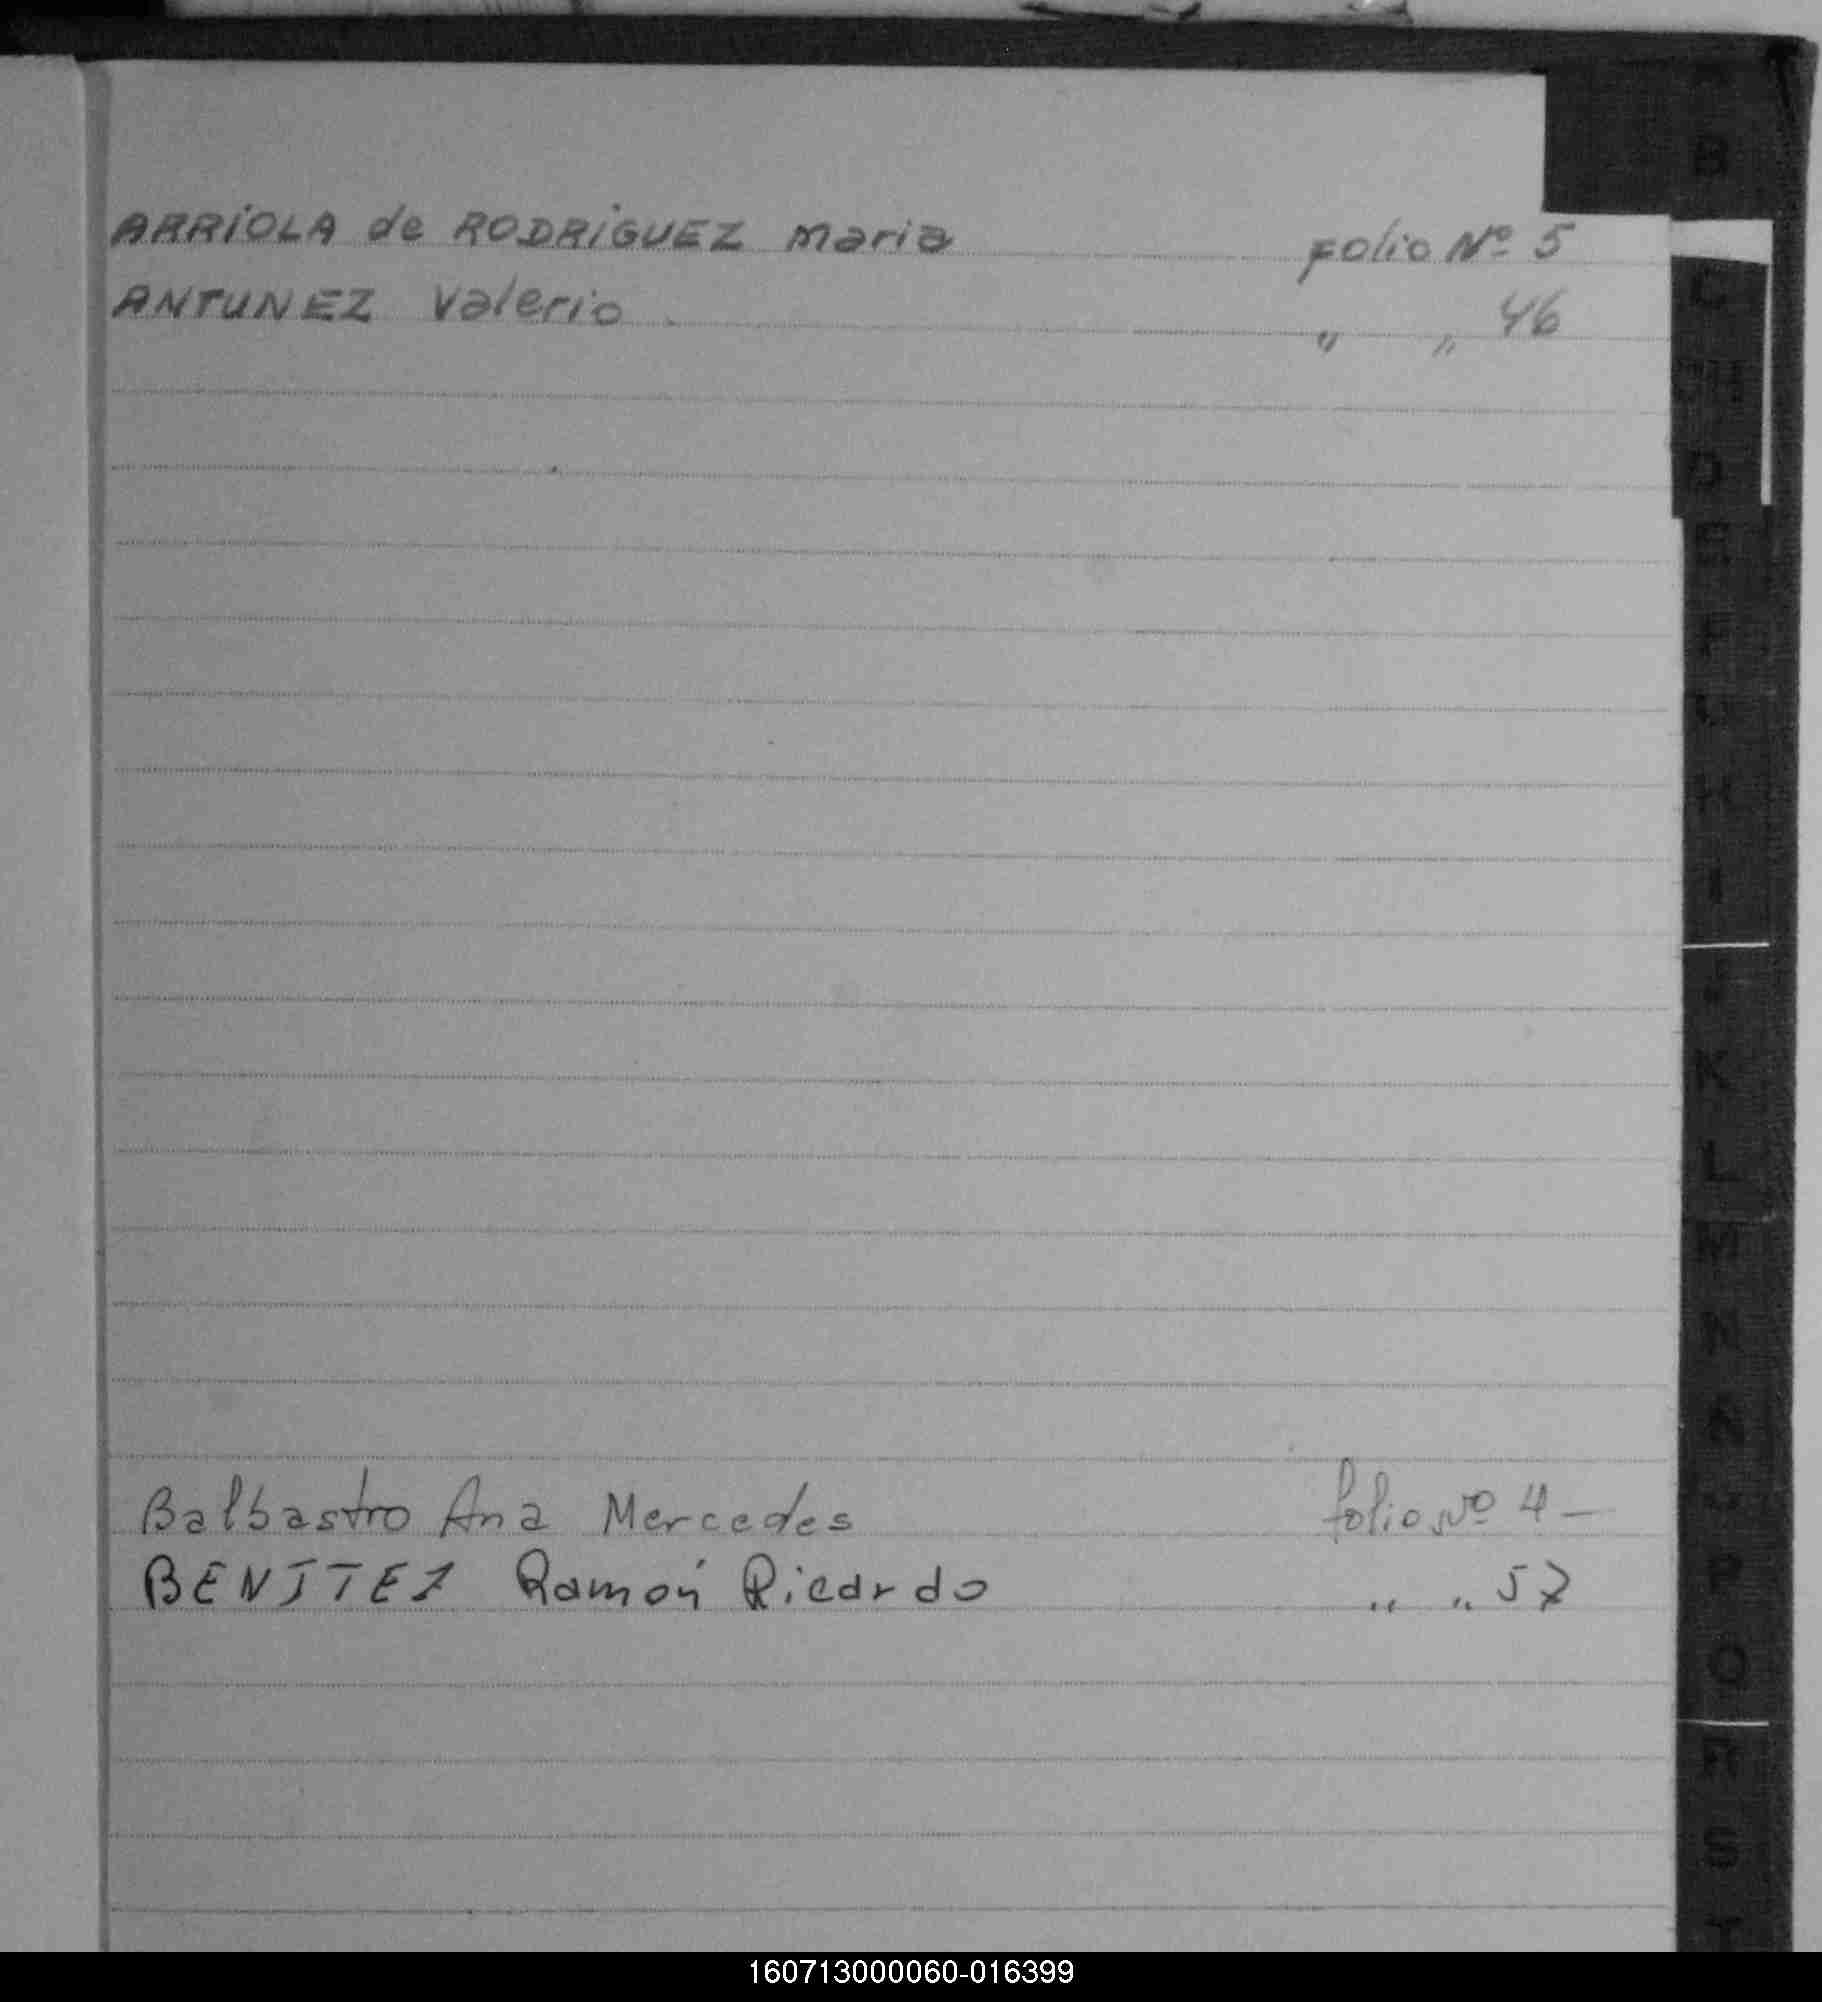 ARRIOLA de RODRIGUEZ Maria Folio Nº 5
ANTUNEZ Valerio " " 46
Balbastro Ana Mercedes folio Nº 4 —
BENITEZ Ramón Ricardo " " 57
B
C
CH
D
E
F
G
H
I
J
K
L
M
N
Ñ
O
P
Q
R
S
T
160713000060-016399